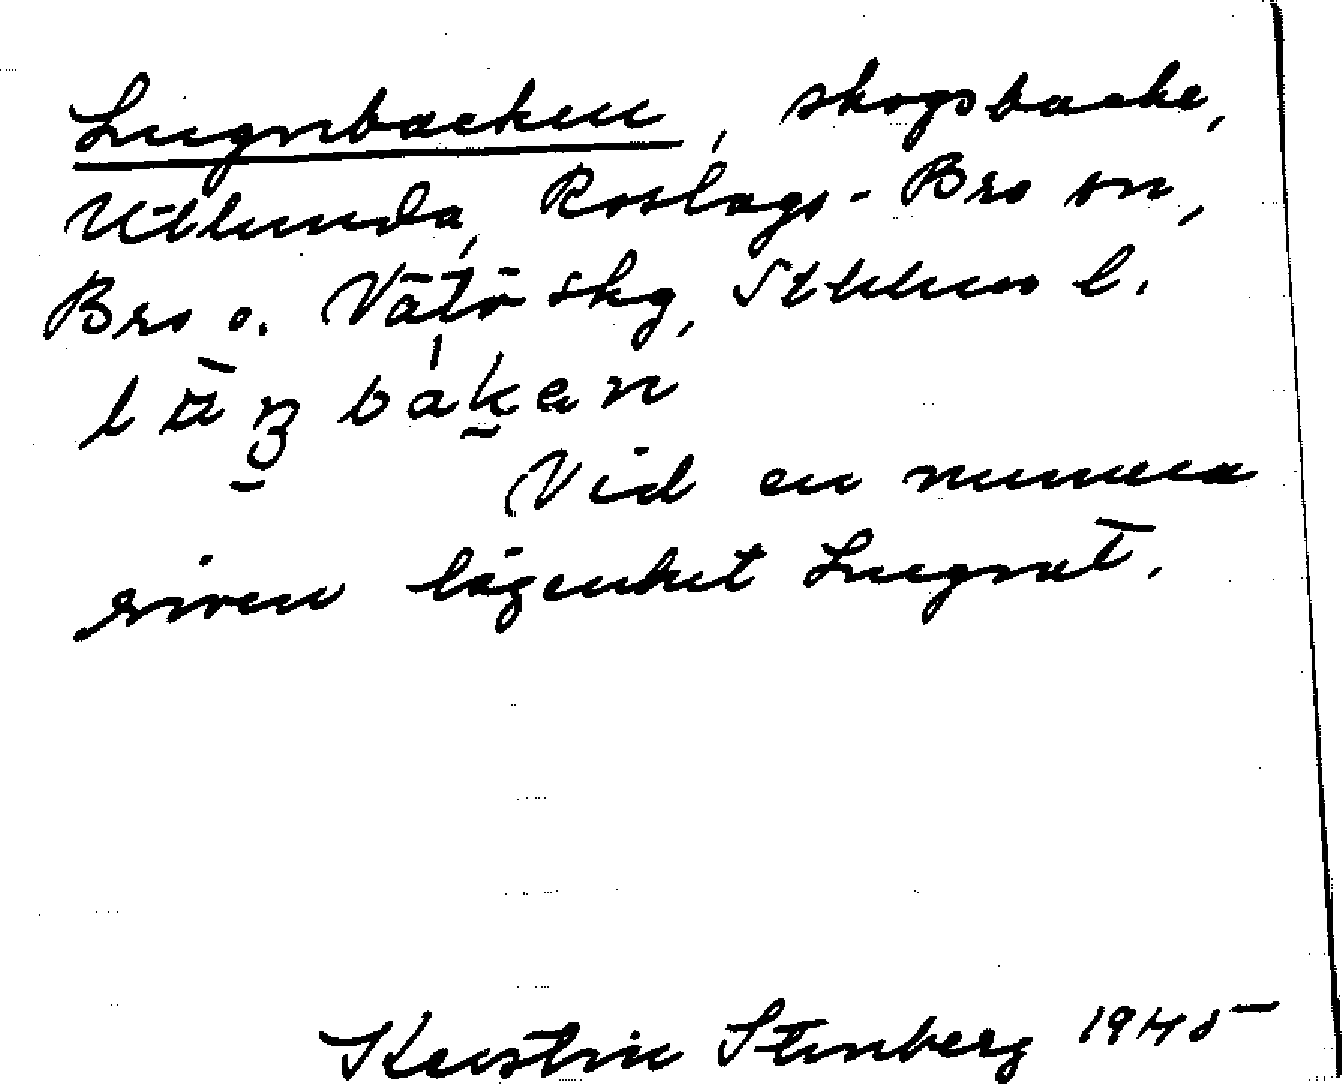 Lugnbacken, skogsbacke,
Utlunda, Roslags-Bro sn,
Bro o. Vätö skg, Sthlms l.
Vid en numera
riven lägenhet Lugnet.
Kerstin Stenberg 1945